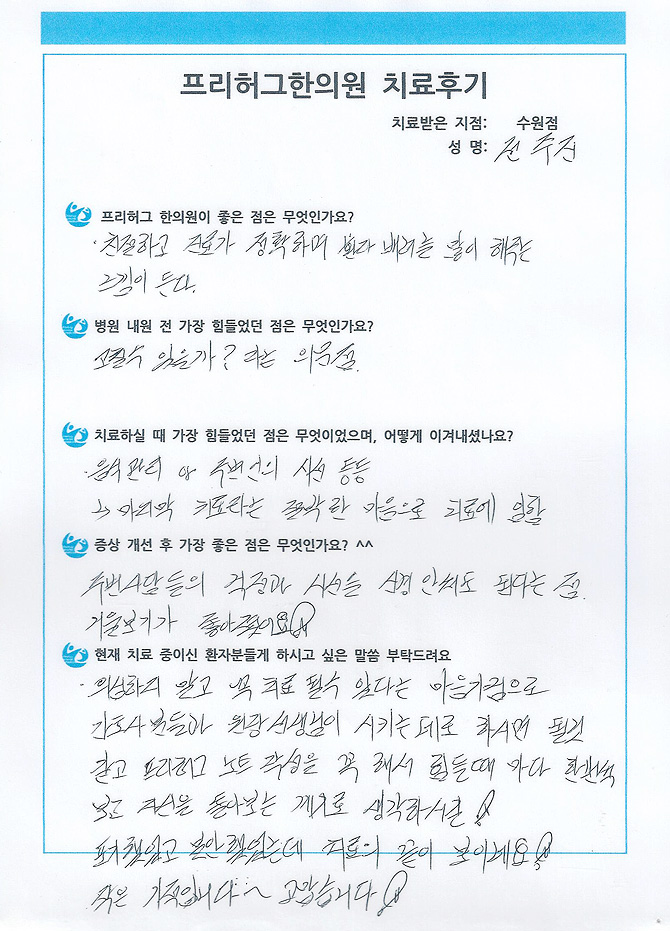 프리허그한의원 치료후기
치료받은 지점: 수원점
성 명: 전 주진
프리허그 한의원이 좋은 점은 무엇인가요?
· 친절하고 진료가 정확하며 환자 배려를 많이 해주는
느낌이 든다.
병원 내원 전 가장 힘들었던 점은 무엇인가요?
고칠수 있을까? 라는 의문점.
치료하실 때 가장 힘들었던 점은 무엇이었으며, 어떻게 이겨내셨나요?
· 음식관리 or 주변인의 시선 등등
→ 마지막 치료라는 절박한 마음으로 치료에 임함
증상 개선 후 가장 좋은 점은 무엇인가요? ^^
주변사람들의 걱정과 시선을 신경 안써도 된다는 점.
거울보기가 좋아졌어요!
현재 치료 중이신 환자분들게 하시고 싶은 말씀 부탁드려요
· 의심하지 말고 꼭 치료 될수 있다는 마음가짐으로
간호사분들과 원장선생님이 시키는데로 하시면 될것
같고 프리허그 노트 작성을 꼭 해서 힘들때 마다
보고 자신을 돌아보는 계기로 생각하시길!
포기했었고 불안했었는데 치료의 끝이 보이네요!
작은 기적입니다~ 고맙습니다!